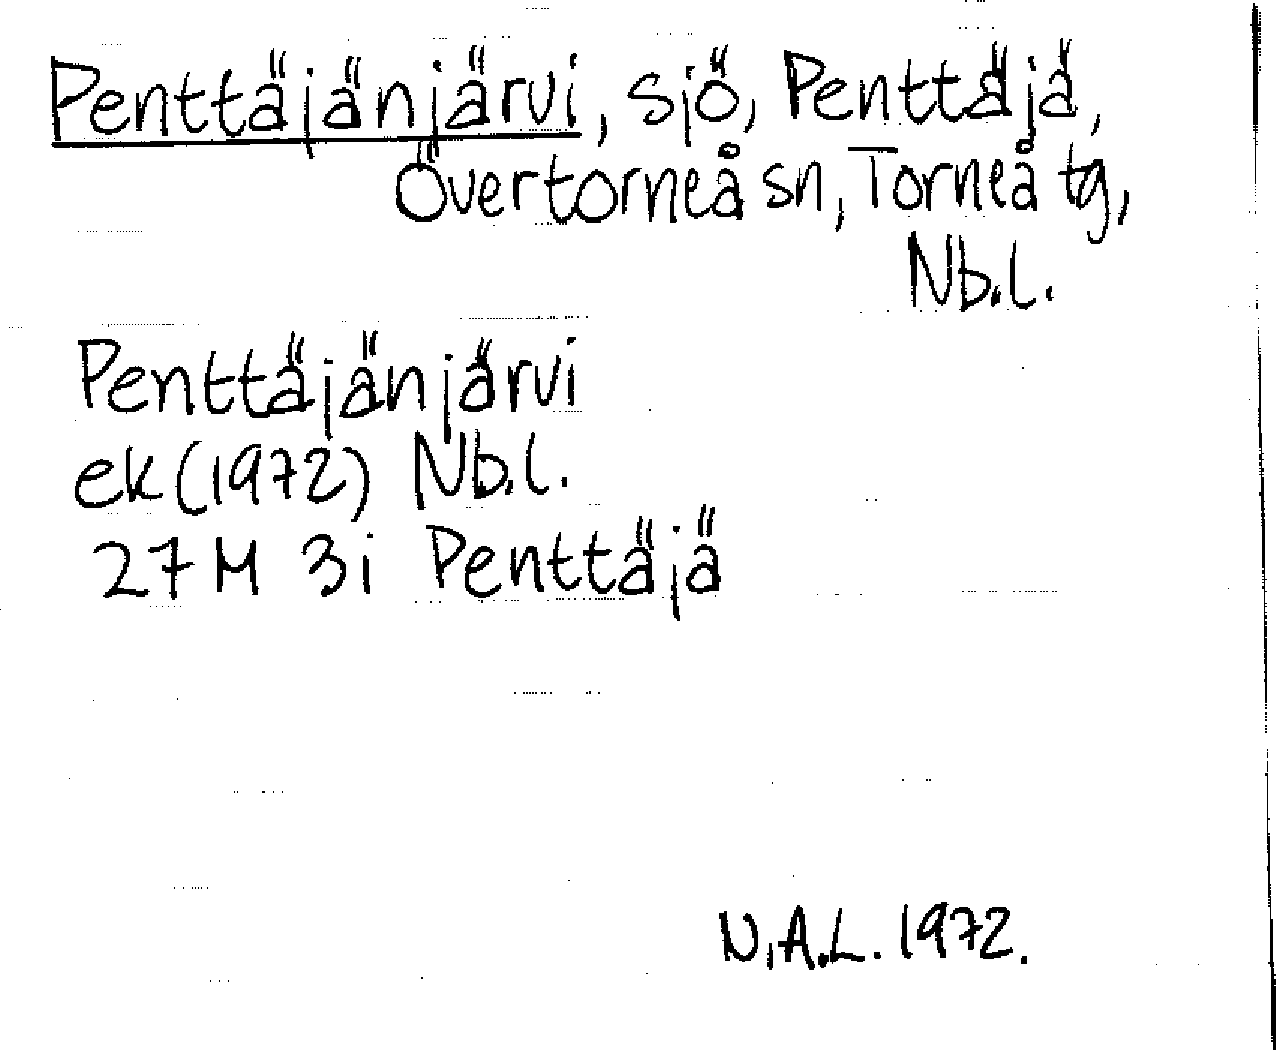 Penttäjänjärvi, sjö, Penttäjä,
Övertorneå sn, Torneå tg,
Nb.l.
Penttäjänjärvi
ek (1972) Nb.l.
27 M 3i Penttäjä
N.A.L. 1972.